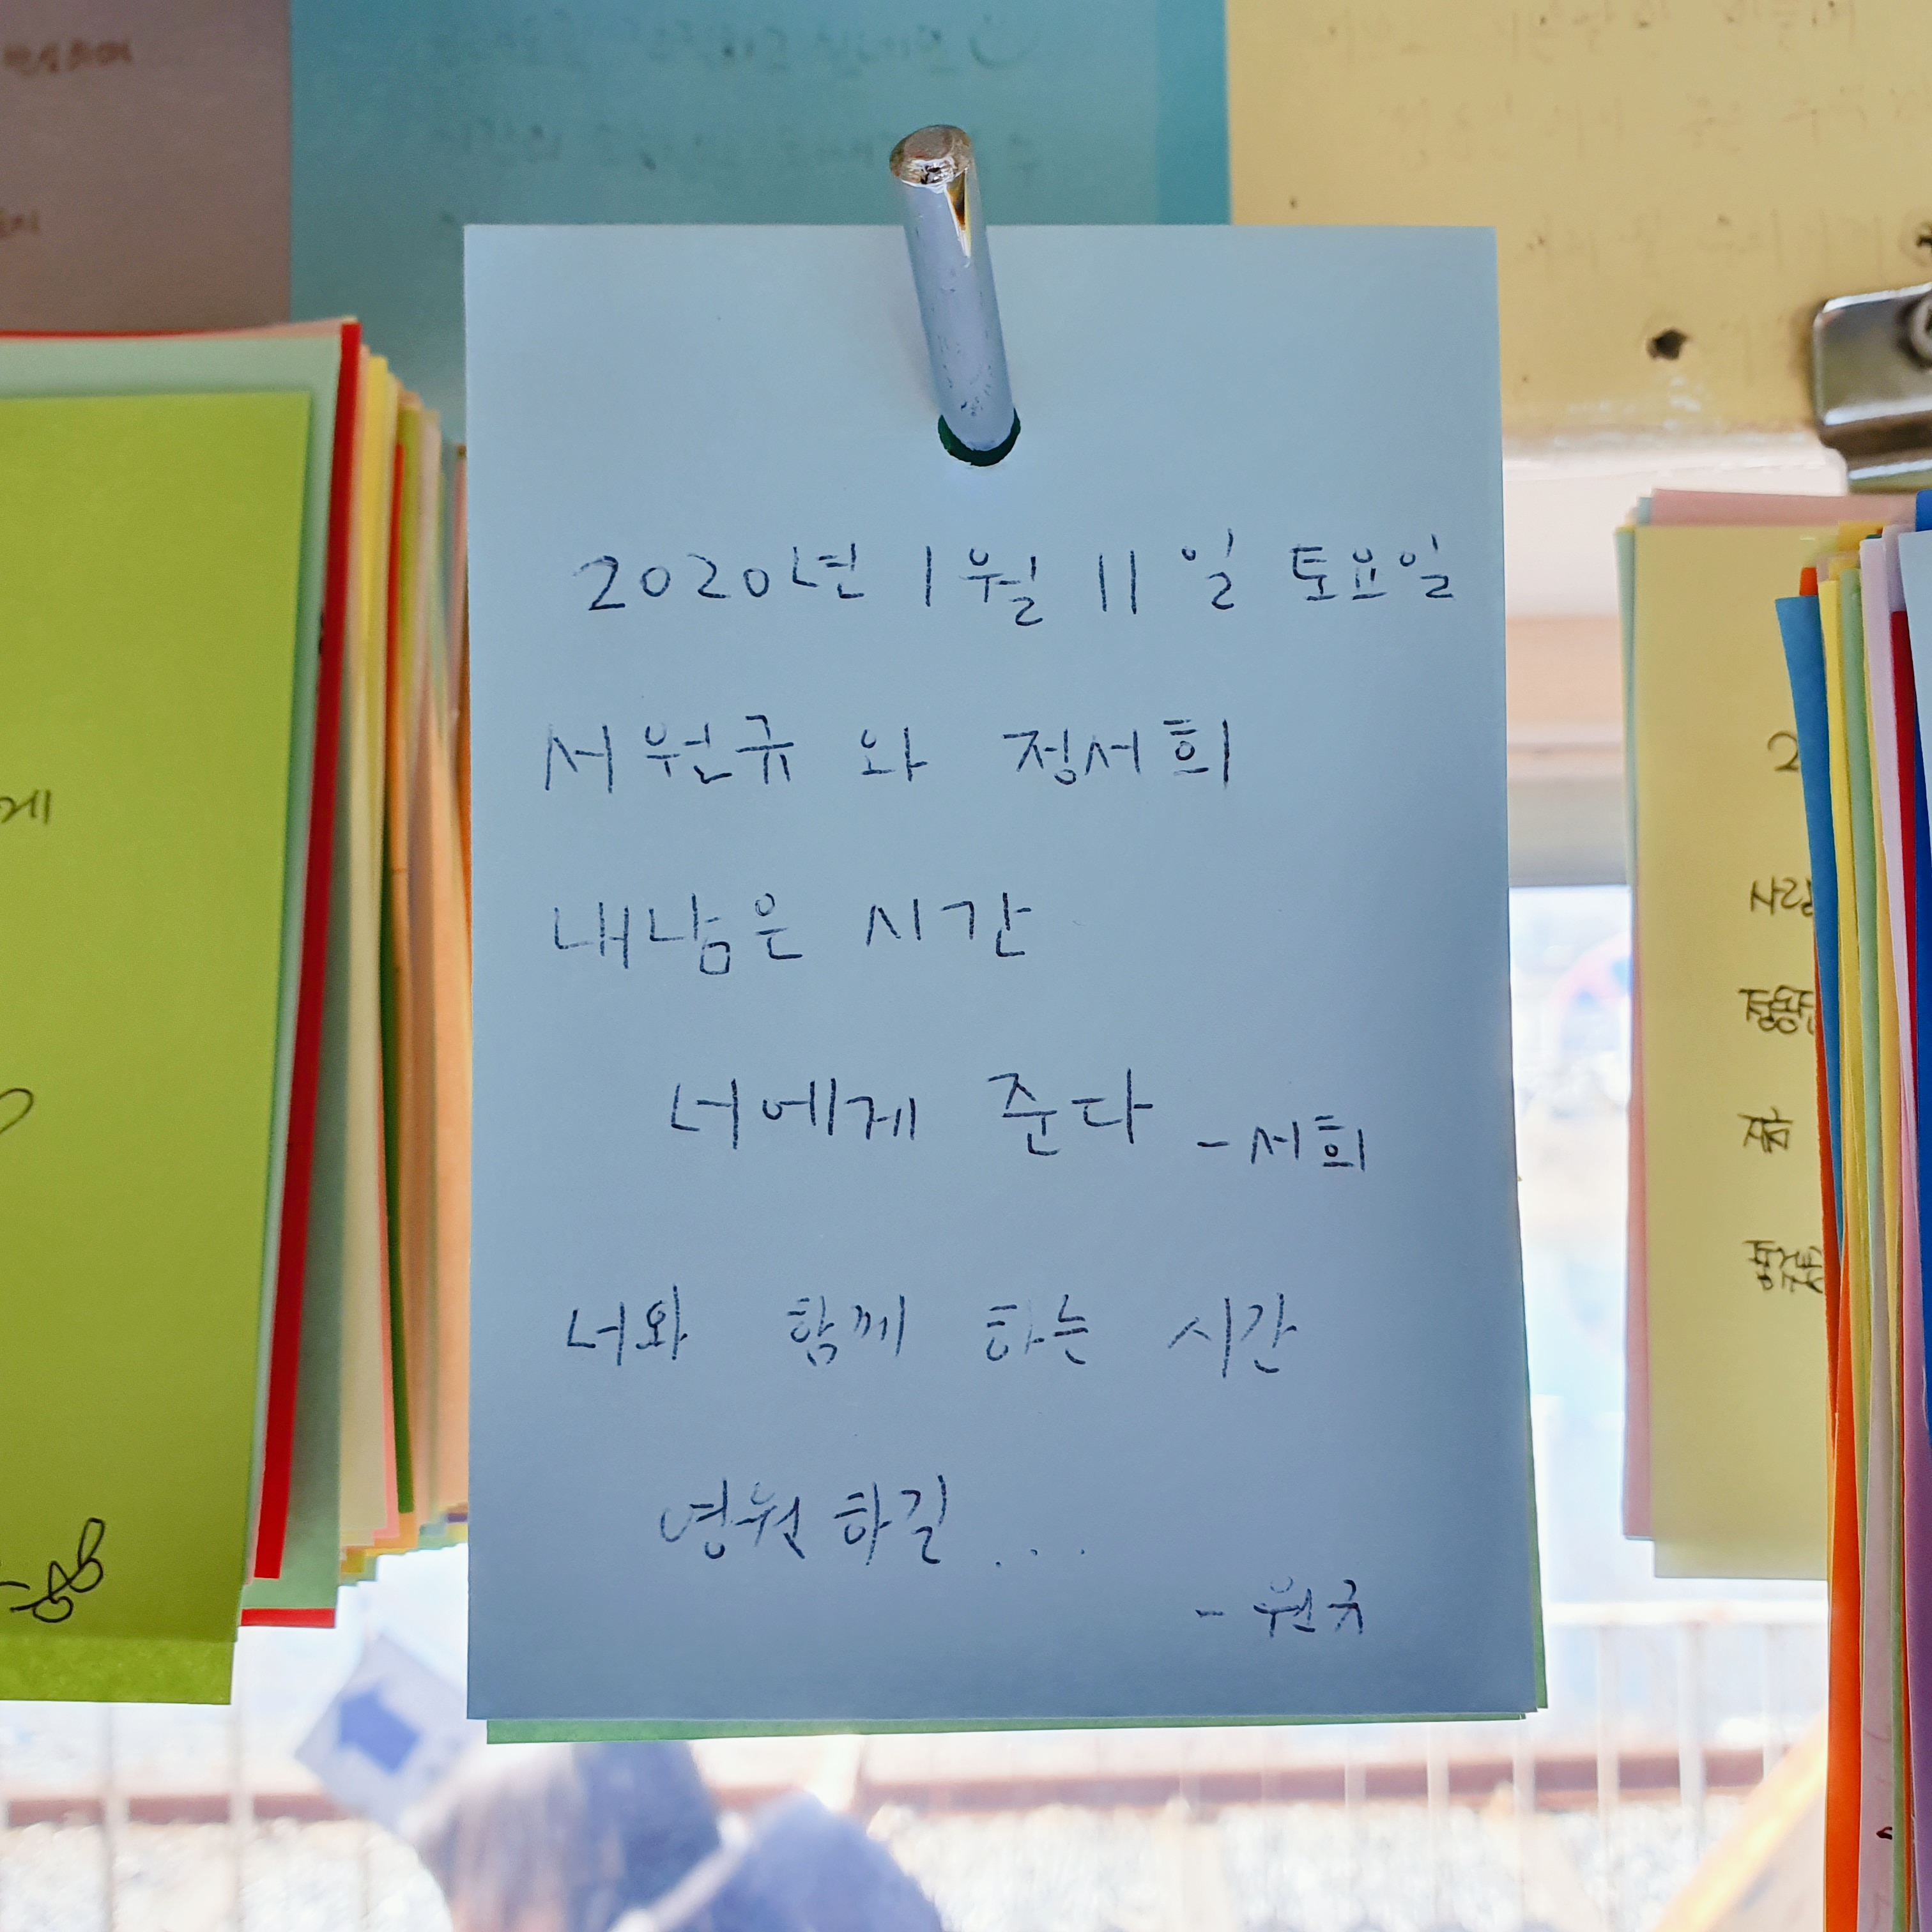 2020년 1월 11일 토요일
서원규 와 정서희
내남은 시간
너에게 준다 -서희
너와 함께 하는 시간
영원하길...
- 원규